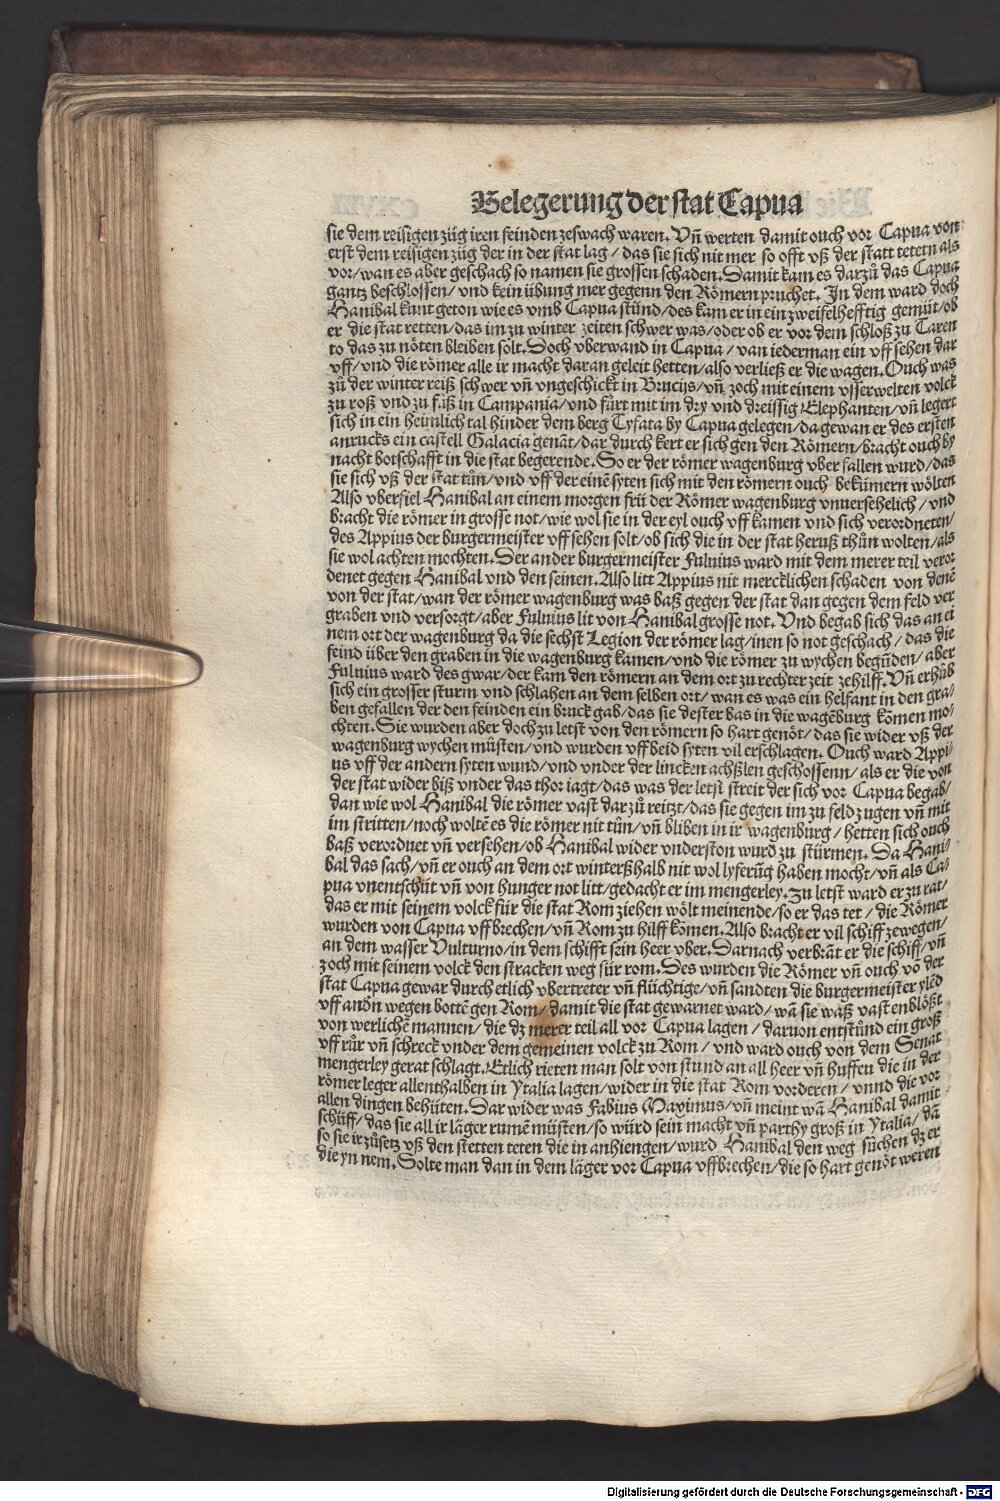 Belegerung der stat Capua
sie dem reisigen züg iren feinden zeswach waren. Vñ werten damit ouch vor Capua von
erst dem reisigen züg der in der stat lag / das sie sich nit mer so offt vß der statt tetetn als
vor/wan es aber geschach so namen sie grossen schaden. Damit kam es darzů das Capua
gantz beschlossen/vnd kein übung mer gegenn den Römern pruchet. In dem ward doch
Hanibal kunt geton wie es vmb Capua stůnd/des kam er in ein zweifelhefftig gemüt/ob
er die stat retten/das im zu winter zeiten schwer was/oder ob er vor dem schloß zu Taren
to das zu nöten bleiben solt. Doch vberwand in Capua / van iederman ein vff sehen dar
vff/vnd die römer alle ir macht daran geleit hetten/also verließ er die wagen. Ouch was
zů der winter reiß schwer vñ vngeschickt in Brucijs/vñ zoch mit einem vsserwelten volck
zu roß vnd zu fůß in Campania/vnd fürt mit im dry vnd dreissig Elephanten/vñ legert
sich in ein heimlich tal hinder dem berg Tyfata by Capua gelegen/da gewan er des ersten
anrucks ein castell Galacia genãt/dar durch kert er sich gen den Römern/bracht ouch by
nacht botschafft in die stat begerende. So er der römer wagenburg vber fallen wurd/das
sie sich vß der stat tůn/vnd vff der eine syten sich mit den römern ouch bekümern wölten
Also vberfiel Hanibal an einem morgen frü der Römer wagenburg vnuersehelich / vnd
bracht die römer in grosse not/wie wol sie in der eyl ouch vff kamen vnd sich verordneten/
des Appius der burgermeister vff sehen solt/ob sich die in der stat heruß thůn wolten/als
sie wol achten mochten. Der ander burgermeister Fuluius ward mit dem merer teil veror
denet gegen Hanibal vnd den seinen. Also litt Appius nit mercklichen schaden von denẽ
von der stat/wan der römer wagenburg was baß gegen der stat dan gegen dem feld ver
graben vnd versorgt/aber Fuluius lit von Hanibal grosse not. Vnd begab sich das an ei
nem ort der wagenburg da die sechst Legion der römer lag/inen so not geschach / das die
feind über den graben in die wagenburg kamen/vnd die römer zu wychen begůden/ aber
Fuluius ward des gwar/der kam den römern an dem ort zu rechter zeit zehilff. Vñ erhůb
sich ein grosser sturm vnd schlahen an dem selben ort/ wan es was ein helfant in den gra/
ben gefallen der den feinden ein bruck gab/das sie dester bas in die wagẽburg kõmen mo/
chten. Sie wurden aber doch zu letst von den römern so hart genöt/ das sie wider vß der
wagenburg wychen můsten/vnd wurden vff beid syten vil erschlagen. Ouch ward Appi/
us vff der andern syten wund/vnd vnder der lincken achßlen geschossenn/ als er die von
der stat wider biß vnder das thor iagt/das was der letst streit der sich vor Capua begab/
dan wie wol Hanibal die römer vast dar zů reitzt/das sie gegen im zu feld zugen vñ mit
im stritten/noch woltẽ es die römer nit tůn/vñ bliben in ir wagenburg / hetten sich ouch
baß verordnet vñ versehen/ob Hanibal wider vnderston wurd zu stürmen. Da Hani/
bal das sach/vñ er ouch an dem ort winterßhalb nit wol lyferũg haben mocht/vñ als Ca/
pua vnentschüt vñ von hunger not litt/gedacht er im mengerley. Zu letst ward er zu rat/
das er mit seinem volck für die stat Rom ziehen wölt meinende/so er das tet / die Römer
wurden von Capua vff brechen/vñ Rom zu hilff kõmen. Also bracht er vil schiff zewegen/
an dem wasser Vulturno/in dem schifft sein heer vber. Darnach verbrãt er die schiff/vñ
zoch mit seinem volck den stracken weg für rom. Des wurden die Römer vñ ouch võ der
stat Capua gewar durch etlich vbertreter vñ flüchtige/vñ sandten die burgermeister ylẽd
vff andñ wegen bottẽ gen Rom/ damit die stat gewarnet ward/ wã sie waß vast enblößt
von werlichẽ mannen/ die dz merer teil all vor Capua lagen / daruon entstůnd ein groß
vff růr vñ schreck vnder dem gemeinen volck zu Rom / vnd ward ouch von dem Senat
mengerley gerat schlagt. Etlich rieten man solt von stund an all heer vñ huffen die in der
römer leger allenthalben in Ytalia lagen/wider in die stat Rom vorderen / vnnd die vor
allen dingen behüten. Dar wider was Fabius Maximus/vñ meint wã Hanibal damit
schüff/ das sie all ir läger rumẽ müsten/ so würd sein macht vñ parthy groß in Ytalia/ dã
so sie ir zůsetz vß den stetten teten die in anhiengen/wurd Hanibal den weg sůchen dz er
die yn nem. Solte man dan in dem läger vor Capua vffbrechen/die so hart genöt weren
Digitalisierung gefördert durch die Deutsche Forschungsgemeinschaft - DFG